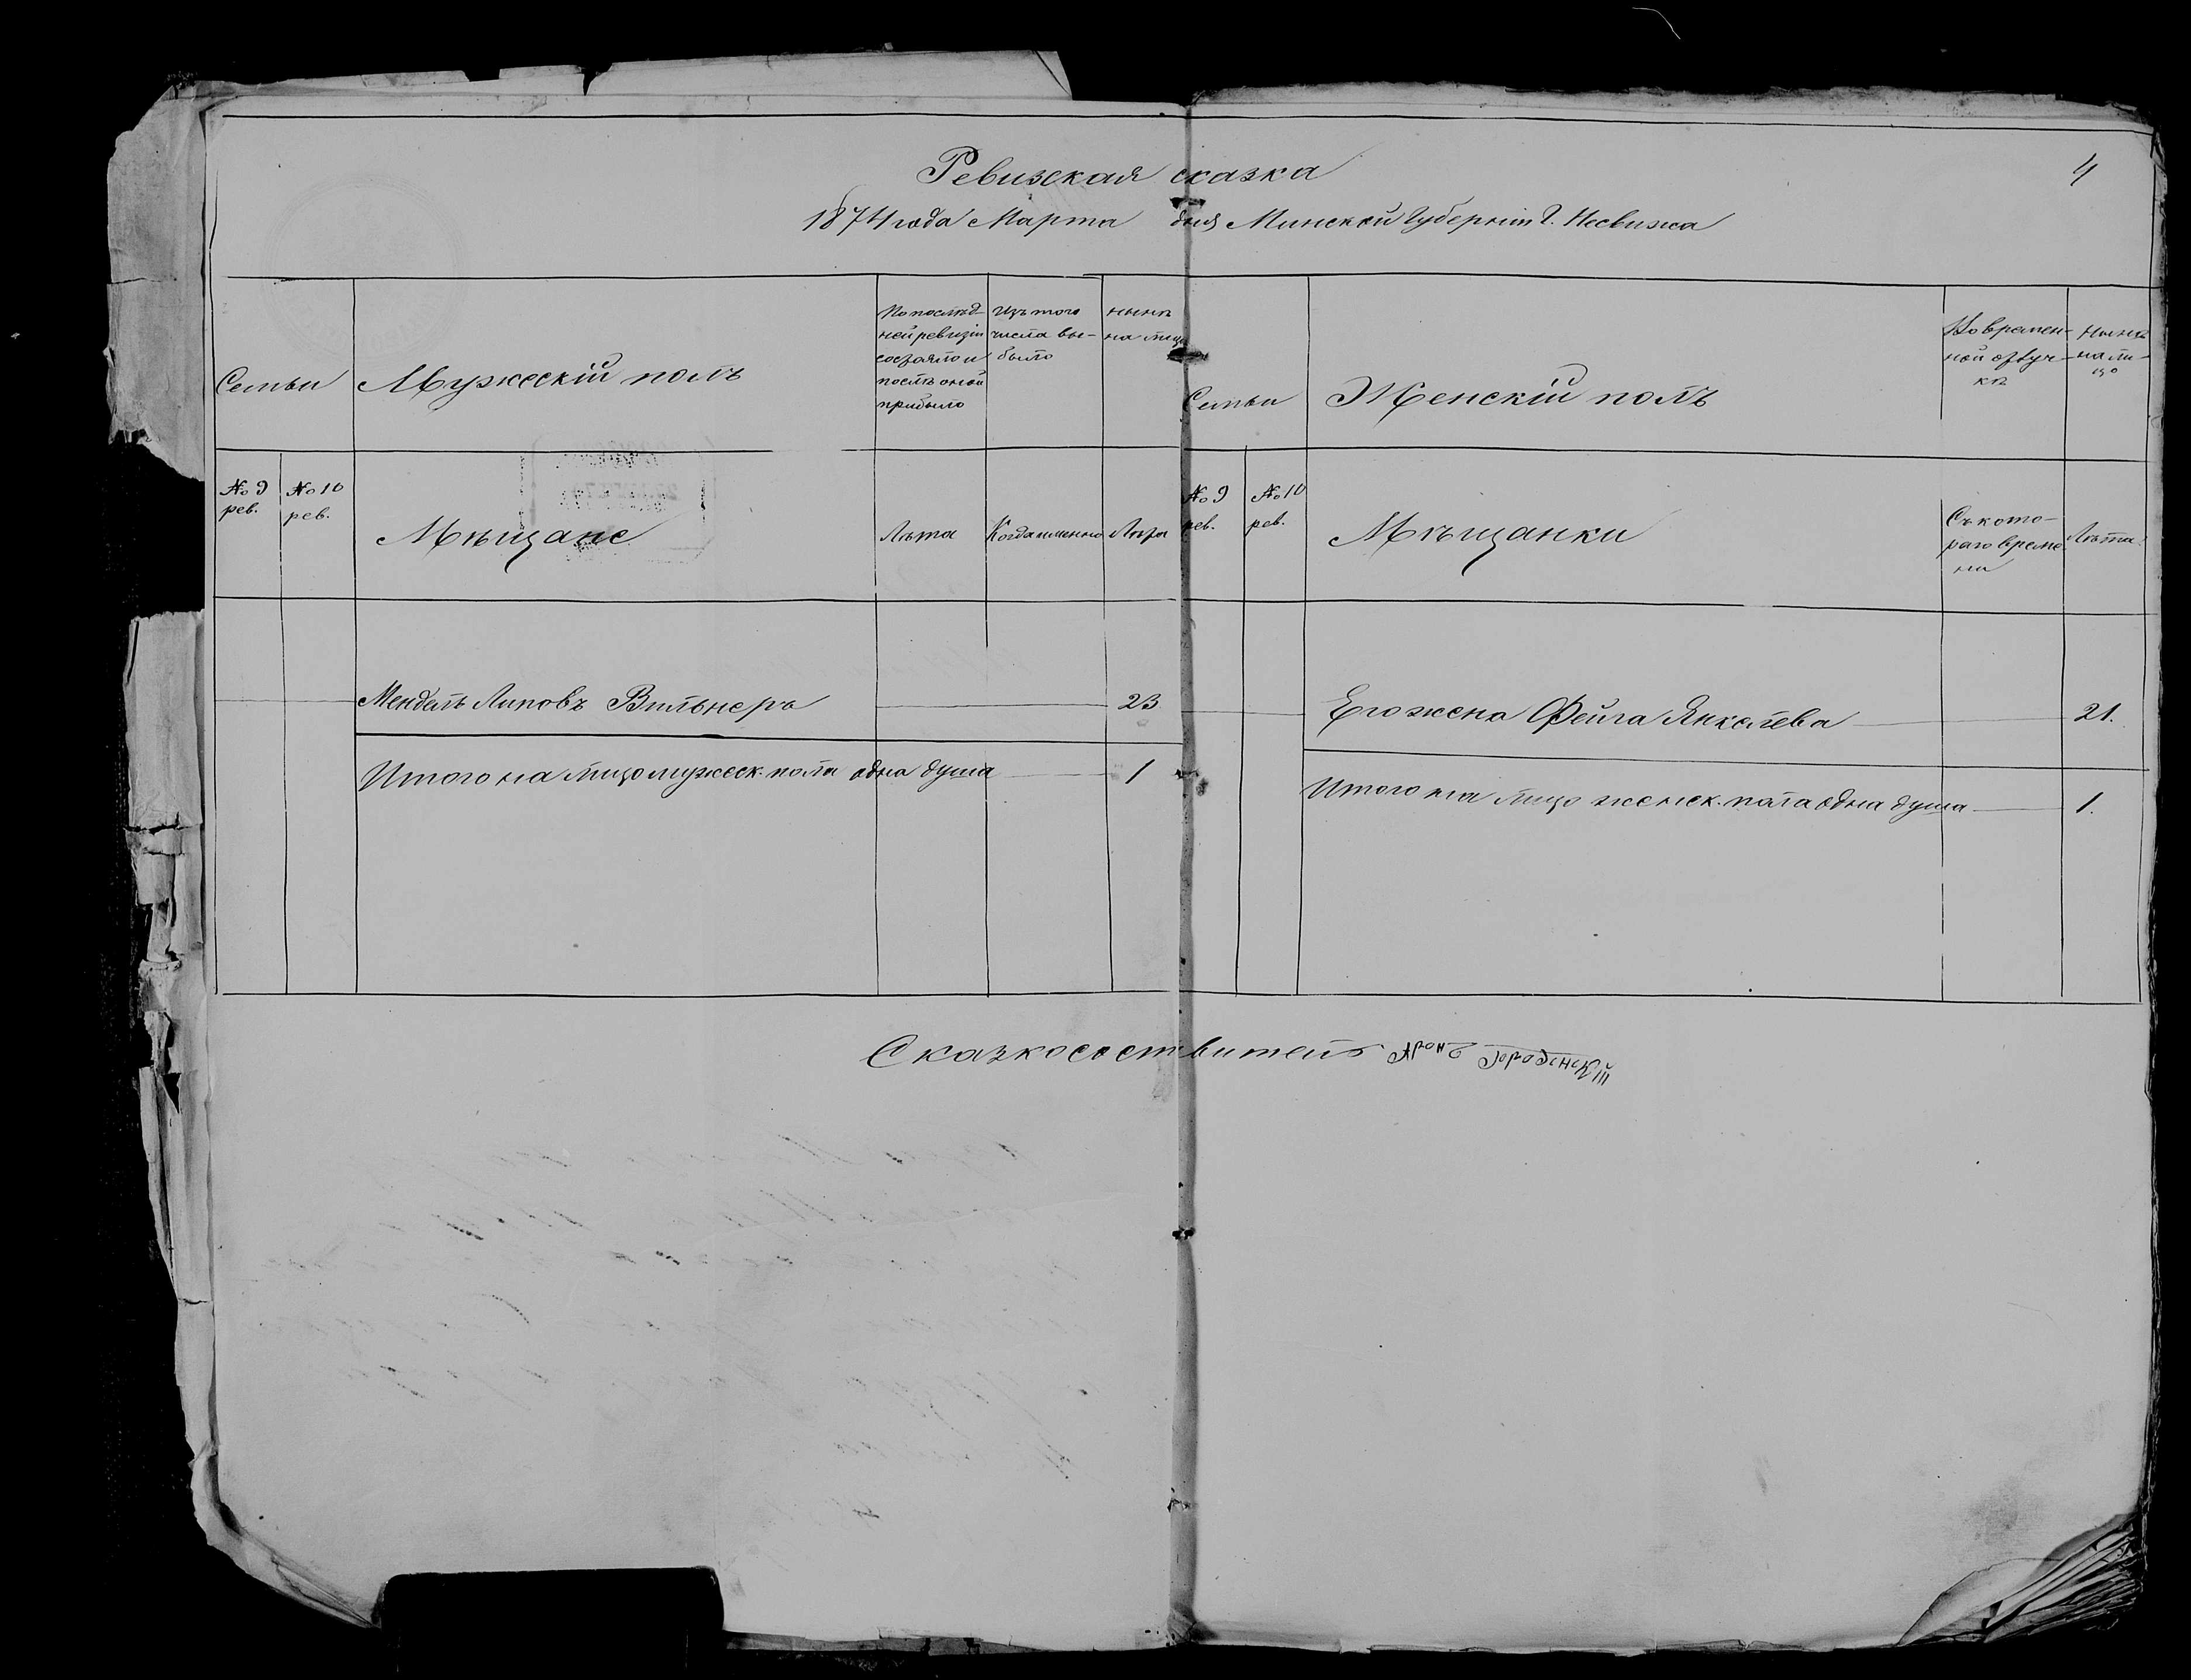 4
Ревизская сказка
1874 года Марта дня Минской Губерніи Г. Несвижа
Семьи
Мужескій полъ
По послѣд-
ней ревизіи
состояло и
послѣ оной
прибыло
Изъ того
числа вы-
было
нынѣ
на лицо
Семьи
Женскій полъ
Во времен-
ной отлуч-
кѣ
Нынѣ
на ли-
цо
№ 9
рев.
№ 10
рев.
Мѣщане
Лѣта
Когда именно
Лѣта
№ 9
рев.
№ 10
рев.
Мѣщанки
Съ кото-
раго време
ни
Лѣта
Мендель Липовъ Вильнеръ 23
Его жена Фейга Янкелева 21.
Итого на лицо мужеск. пола одна душа 1
Итого на лицо женск. пола одна душа 1.
Сказкосоставитель